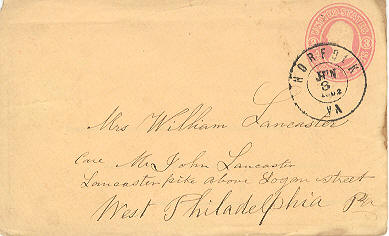 UNITED STATES
NORFOLK
JUN
8
1862
VA
Mrs William Lancaster
Care Mr John Lancaster
Lancaster pike above Logan street
West Philadelphia Pa